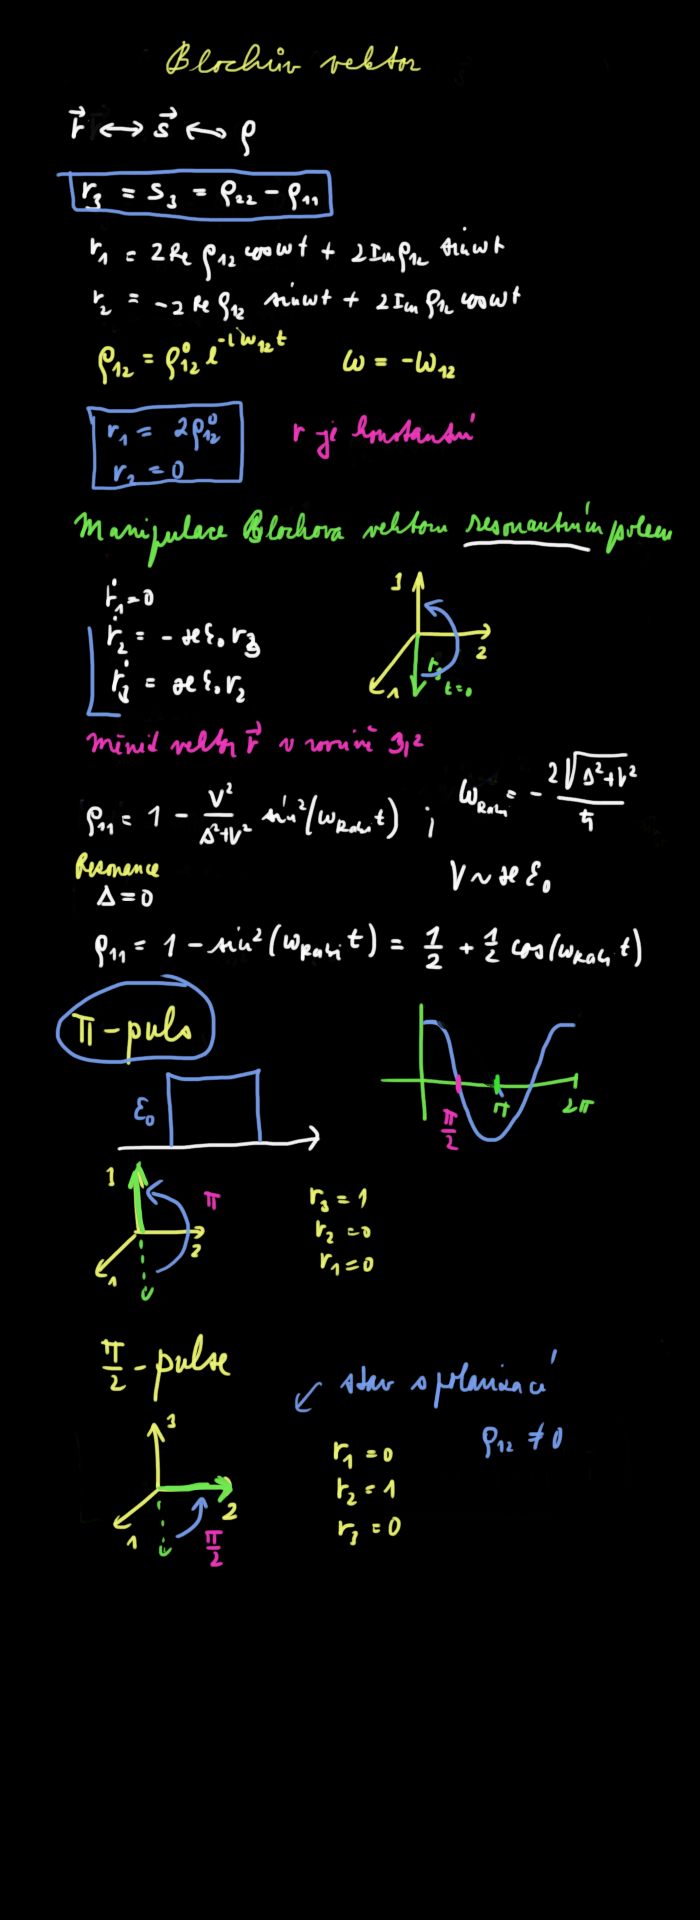 Blochův vektor
r⃗ ↔ s⃗ ↔ ρ
r₃ = s₃ = ρ₂₂ − ρ₁₁
r₁ = 2Re ρ₁₂ cosωt + 2Imρ₁₂ sinωt
r₂ = −2Re ρ₁₂ sinωt + 2Im ρ₁₂ cosωt
ρ₁₂ = ρ₁₂⁰ e^(−iω₁₂t) ω = −ω₁₂
r₁ = 2ρ₁₂⁰
r₂ = 0
r je konstantní
Manipulace Blochova vektoru resonantním polem
ṙ₁ = 0
ṙ₂ = − æℰ₀ r₃
ṙ₃ = æℰ₀ r₂
3
2
1
r₃
t=0
mění vektor r⃗ v rovině 3,2
ρ₁₁ = 1 − V²/(Δ²+V²) sin²(ω_Rabi t) ; ω_Rabi = − 2√(Δ²+V²)/ħ
Resonance
Δ = 0
V ~ æ ℰ₀
ρ₁₁ = 1 − sin²(ω_Rabi t) = 1/2 + 1/2 cos(ω_Rabi t)
π-puls
ℰ₀
π/2
π
2π
1
π
2
1
r₃ = 1
r₂ = 0
r₁ = 0
π/2 - pulse
↙ stav s polarizací
ρ₁₂ ≠ 0
3
2
1
π/2
r₁ = 0
r₂ = 1
r₃ = 0